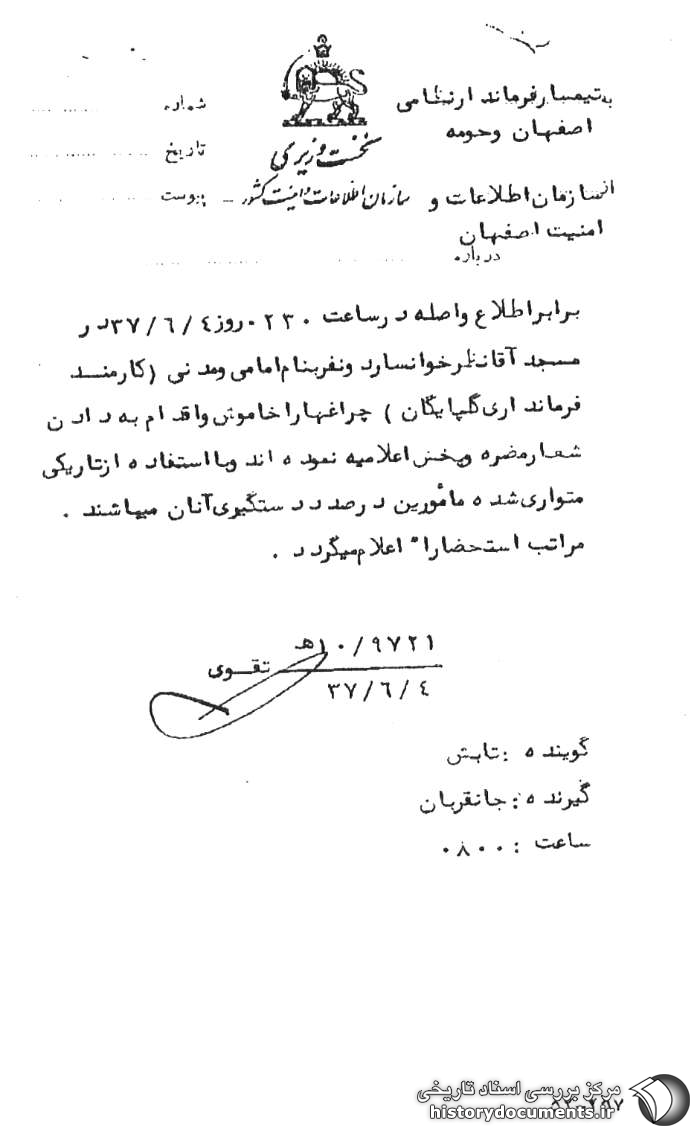 به تیمسار فرماندار نظامی
اصفهان و حومه
شماره
تاریخ
نخست وزیری
سازمان اطلاعات و امنیت کشور
پیوست
از سازمان اطلاعات و
امنیت اصفهان
درباره
برابر اطلاع واصله در ساعت ۰۲۳۰ روز ۳۷/۶/۴ در
مسجد آقانظر خوانسار دو نفر بنام امامی و مدنی (کارمند
فرمانداری گلپایگان) چراغها را خاموش و اقدام به دادن
شعار مضره و پخش اعلامیه نموده اند و با استفاده از تاریکی
متواری شده مأمورین درصدد دستگیری آنان میباشند.
مراتب استحضاراً اعلام میگردد.
۱۰/۹۷۲۱ هـ
تقوی
۳۷/۶/۴
گوینده: تابش
گیرنده: جانقربان
ساعت: ۰۸۰۰
مرکز بررسی اسناد تاریخی
historydocuments.ir